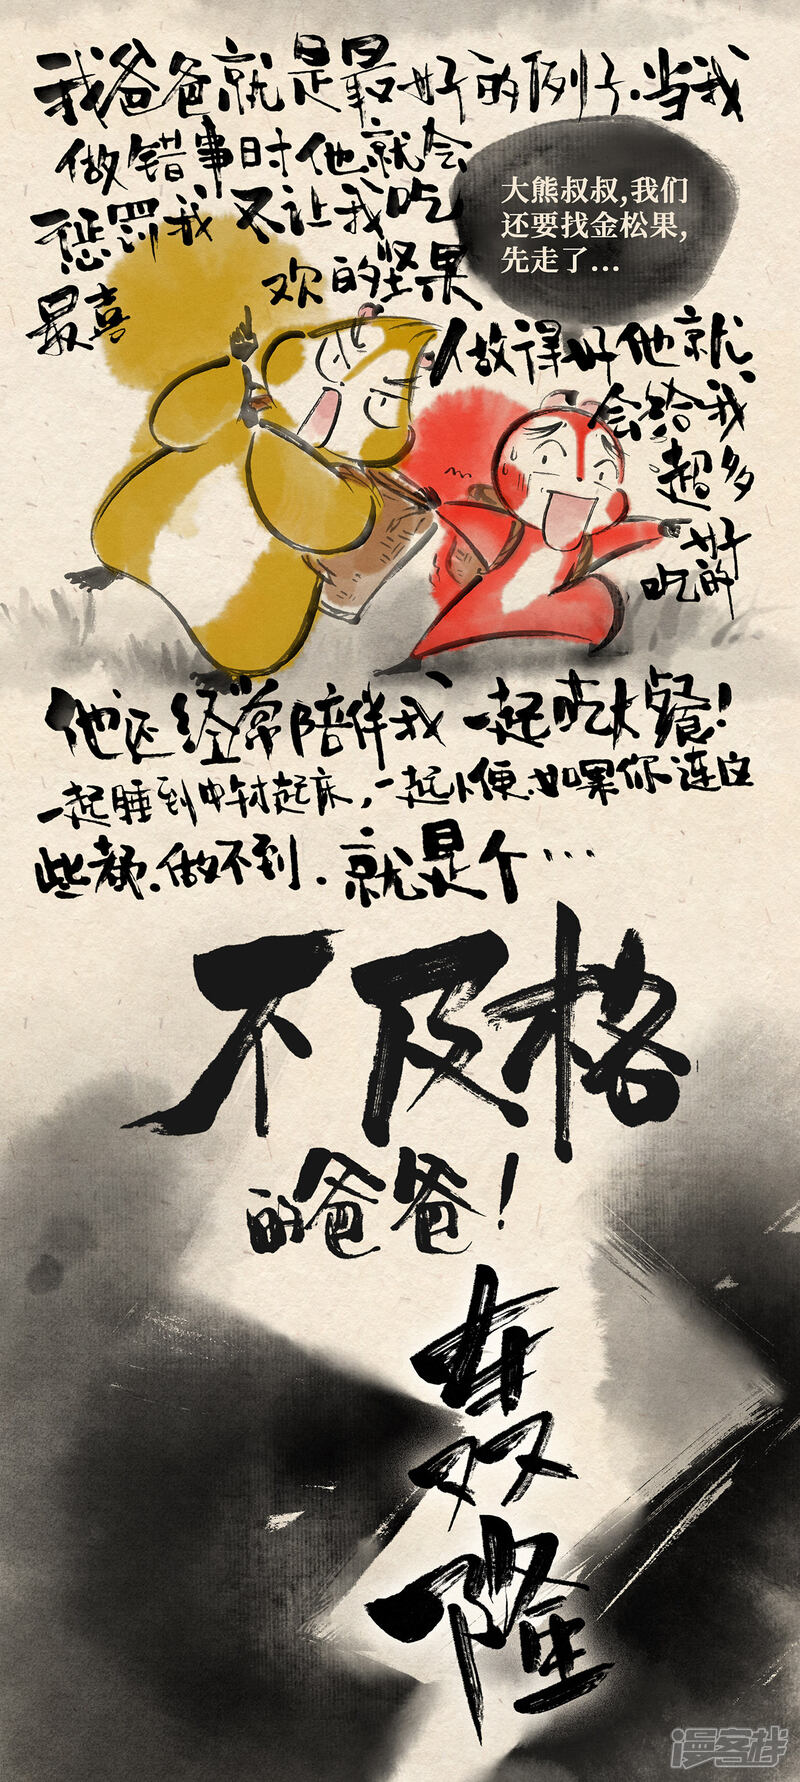 我爸爸就是最好的例子.当我
做错事时他就会
惩罚我 不让我吃
最喜
欢的坚果
大熊叔叔,我们
还要找金松果,
先走了...
做得好他就
会给我
超多
好
吃的
他还经常陪伴我一起吃大餐!
一起睡到中午才起床,一起小便.如果你连这
些都.做不到.就是个...
不及格
的爸爸!
轰
隆
漫客栈